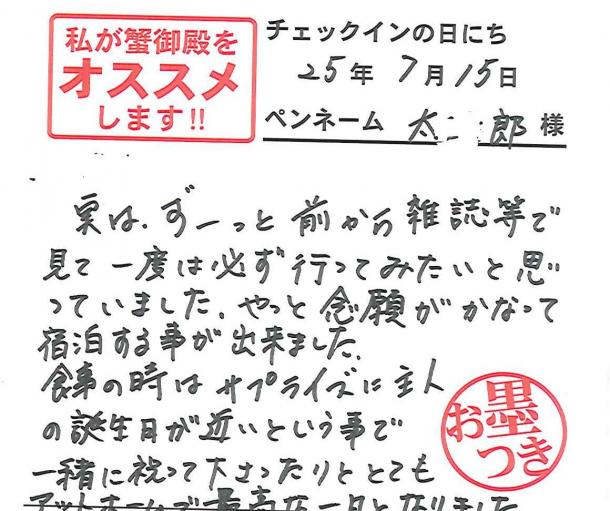 私が蟹御殿を
オススメ
します!!
チェックインの日にち
25年 7月15日
ペンネーム 太二郎 様
実は、ずーっと前から雑誌等で
見て一度は必ず行ってみたいと思
っていました。やっと念願がかなって
宿泊する事が出来ました。
食事の時はサプライズに主人
の誕生日が近いという事で
一緒に祝って下さったりととても
アットホームで最高な一日となりました
お墨つき